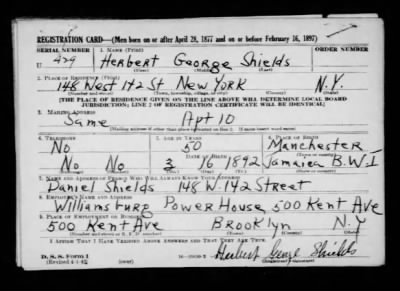 REGISTRATION CARD—(Men born on or after April 28, 1877 and on or before February 16, 1897)
SERIAL NUMBER 1. NAME (Print) ORDER NUMBER
U 429 Herbert George Shields
(First) (Middle) (Last)
2. PLACE OF RESIDENCE (Print)
148 West 142 St New York N.Y.
(Number and street) (Town, township, village, or city) (County) (State)
[THE PLACE OF RESIDENCE GIVEN ON THE LINE ABOVE WILL DETERMINE LOCAL BOARD
JURISDICTION; LINE 2 OF REGISTRATION CERTIFICATE WILL BE IDENTICAL]
3. MAILING ADDRESS
Same Apt 10
[Mailing address if other than place indicated on line 2. If same insert word same]
4. TELEPHONE 5. AGE IN YEARS 6. PLACE OF BIRTH
No 50 Manchester
DATE OF BIRTH (Town or county)
No No 3 16 1892 Jamaica B.W.I
7. NAME AND ADDRESS OF PERSON WHO WILL ALWAYS KNOW YOUR ADDRESS
Daniel Shields 148 W. 142 Street
8. EMPLOYER'S NAME AND ADDRESS
Williamsturg Power House 500 Kent Ave
9. PLACE OF EMPLOYMENT OR BUSINESS
500 Kent Ave Brooklyn N.Y
(Number and street or R. F. D. number) (Town) (County) (State)
I AFFIRM THAT I HAVE VERIFIED ABOVE ANSWERS AND THAT THEY ARE TRUE.
D. S. S. Form 1
(Revised 4-1-42) Herbert George Shields